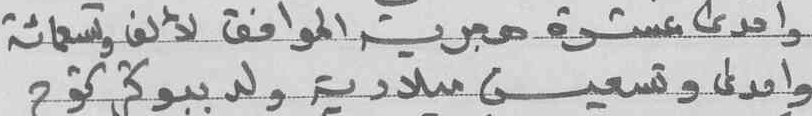 واحدى عشرة هجرية الموافق لألف وتسعمائة
واحدى وتسعين ميلادية ولد ببوكي كوح